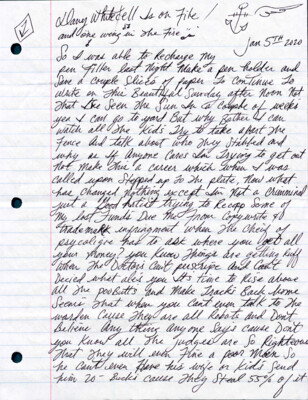 is on Fire!
and one wing in the Fire
Jan 5TH 2020
So I was able to Recharge my
pen Filler last Night Make a pen holder and
Save a couple Slices of paper to continue to
write on This Beautiful Sunday after Noon Not
That Ive Seen The Sun In a couple of weeks
yes I can go to yard But why Bother I can
watch all The Kids Try to take apart The
Fence And talk about who They Stabbed and
why as if Anyone Cares Im Trying to get out
Not Make This a career which when I was
called upon Stepped up To The plate, Now what
has changed Nothing accept Im Not a Criminal
just a Good Artist trying to Recoup Some of
My lost Funds Due Me From Copywrite &
trademark infringment when The Chief of
has to ask where you get all
your Money? you know Things are getting Ruff
when The Doctors Cant and Cant
what ails you its time to Rise above
all The and Make Tracks Back home
Seems That when you cant even talk to The
warden cause They are all Robots and Dont
Any thing anyone Says cause Dont
you know all The Judges are So Righteous
That They will even Fine a poor Man So
he cant even have his wife or kids Send
him 20- Bucks cause They Steal 55% of it